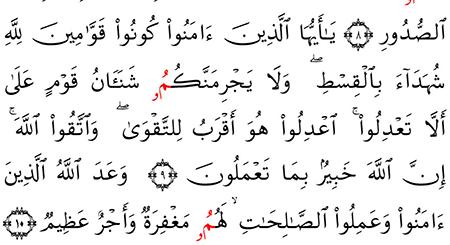 ٱلصُّدُورِ ٨ يَٰٓأَيُّهَا ٱلَّذِينَ ءَامَنُوا۟ كُونُوا۟ قَوَّٰمِينَ لِلَّهِ
شُهَدَآءَ بِٱلْقِسْطِۖ وَلَا يَجْرِمَنَّكُمُۥ شَنَـَٔانُ قَوْمٍ عَلَىٰٓ
أَلَّا تَعْدِلُوا۟ۚ ٱعْدِلُوا۟ هُوَ أَقْرَبُ لِلتَّقْوَىٰۖ وَٱتَّقُوا۟ ٱللَّهَۚ
إِنَّ ٱللَّهَ خَبِيرٌۢ بِمَا تَعْمَلُونَ ٩ وَعَدَ ٱللَّهُ ٱلَّذِينَ
ءَامَنُوا۟ وَعَمِلُوا۟ ٱلصَّٰلِحَٰتِۙ لَهُمُۥ مَغْفِرَةٌ وَأَجْرٌ عَظِيمٌ ١٠